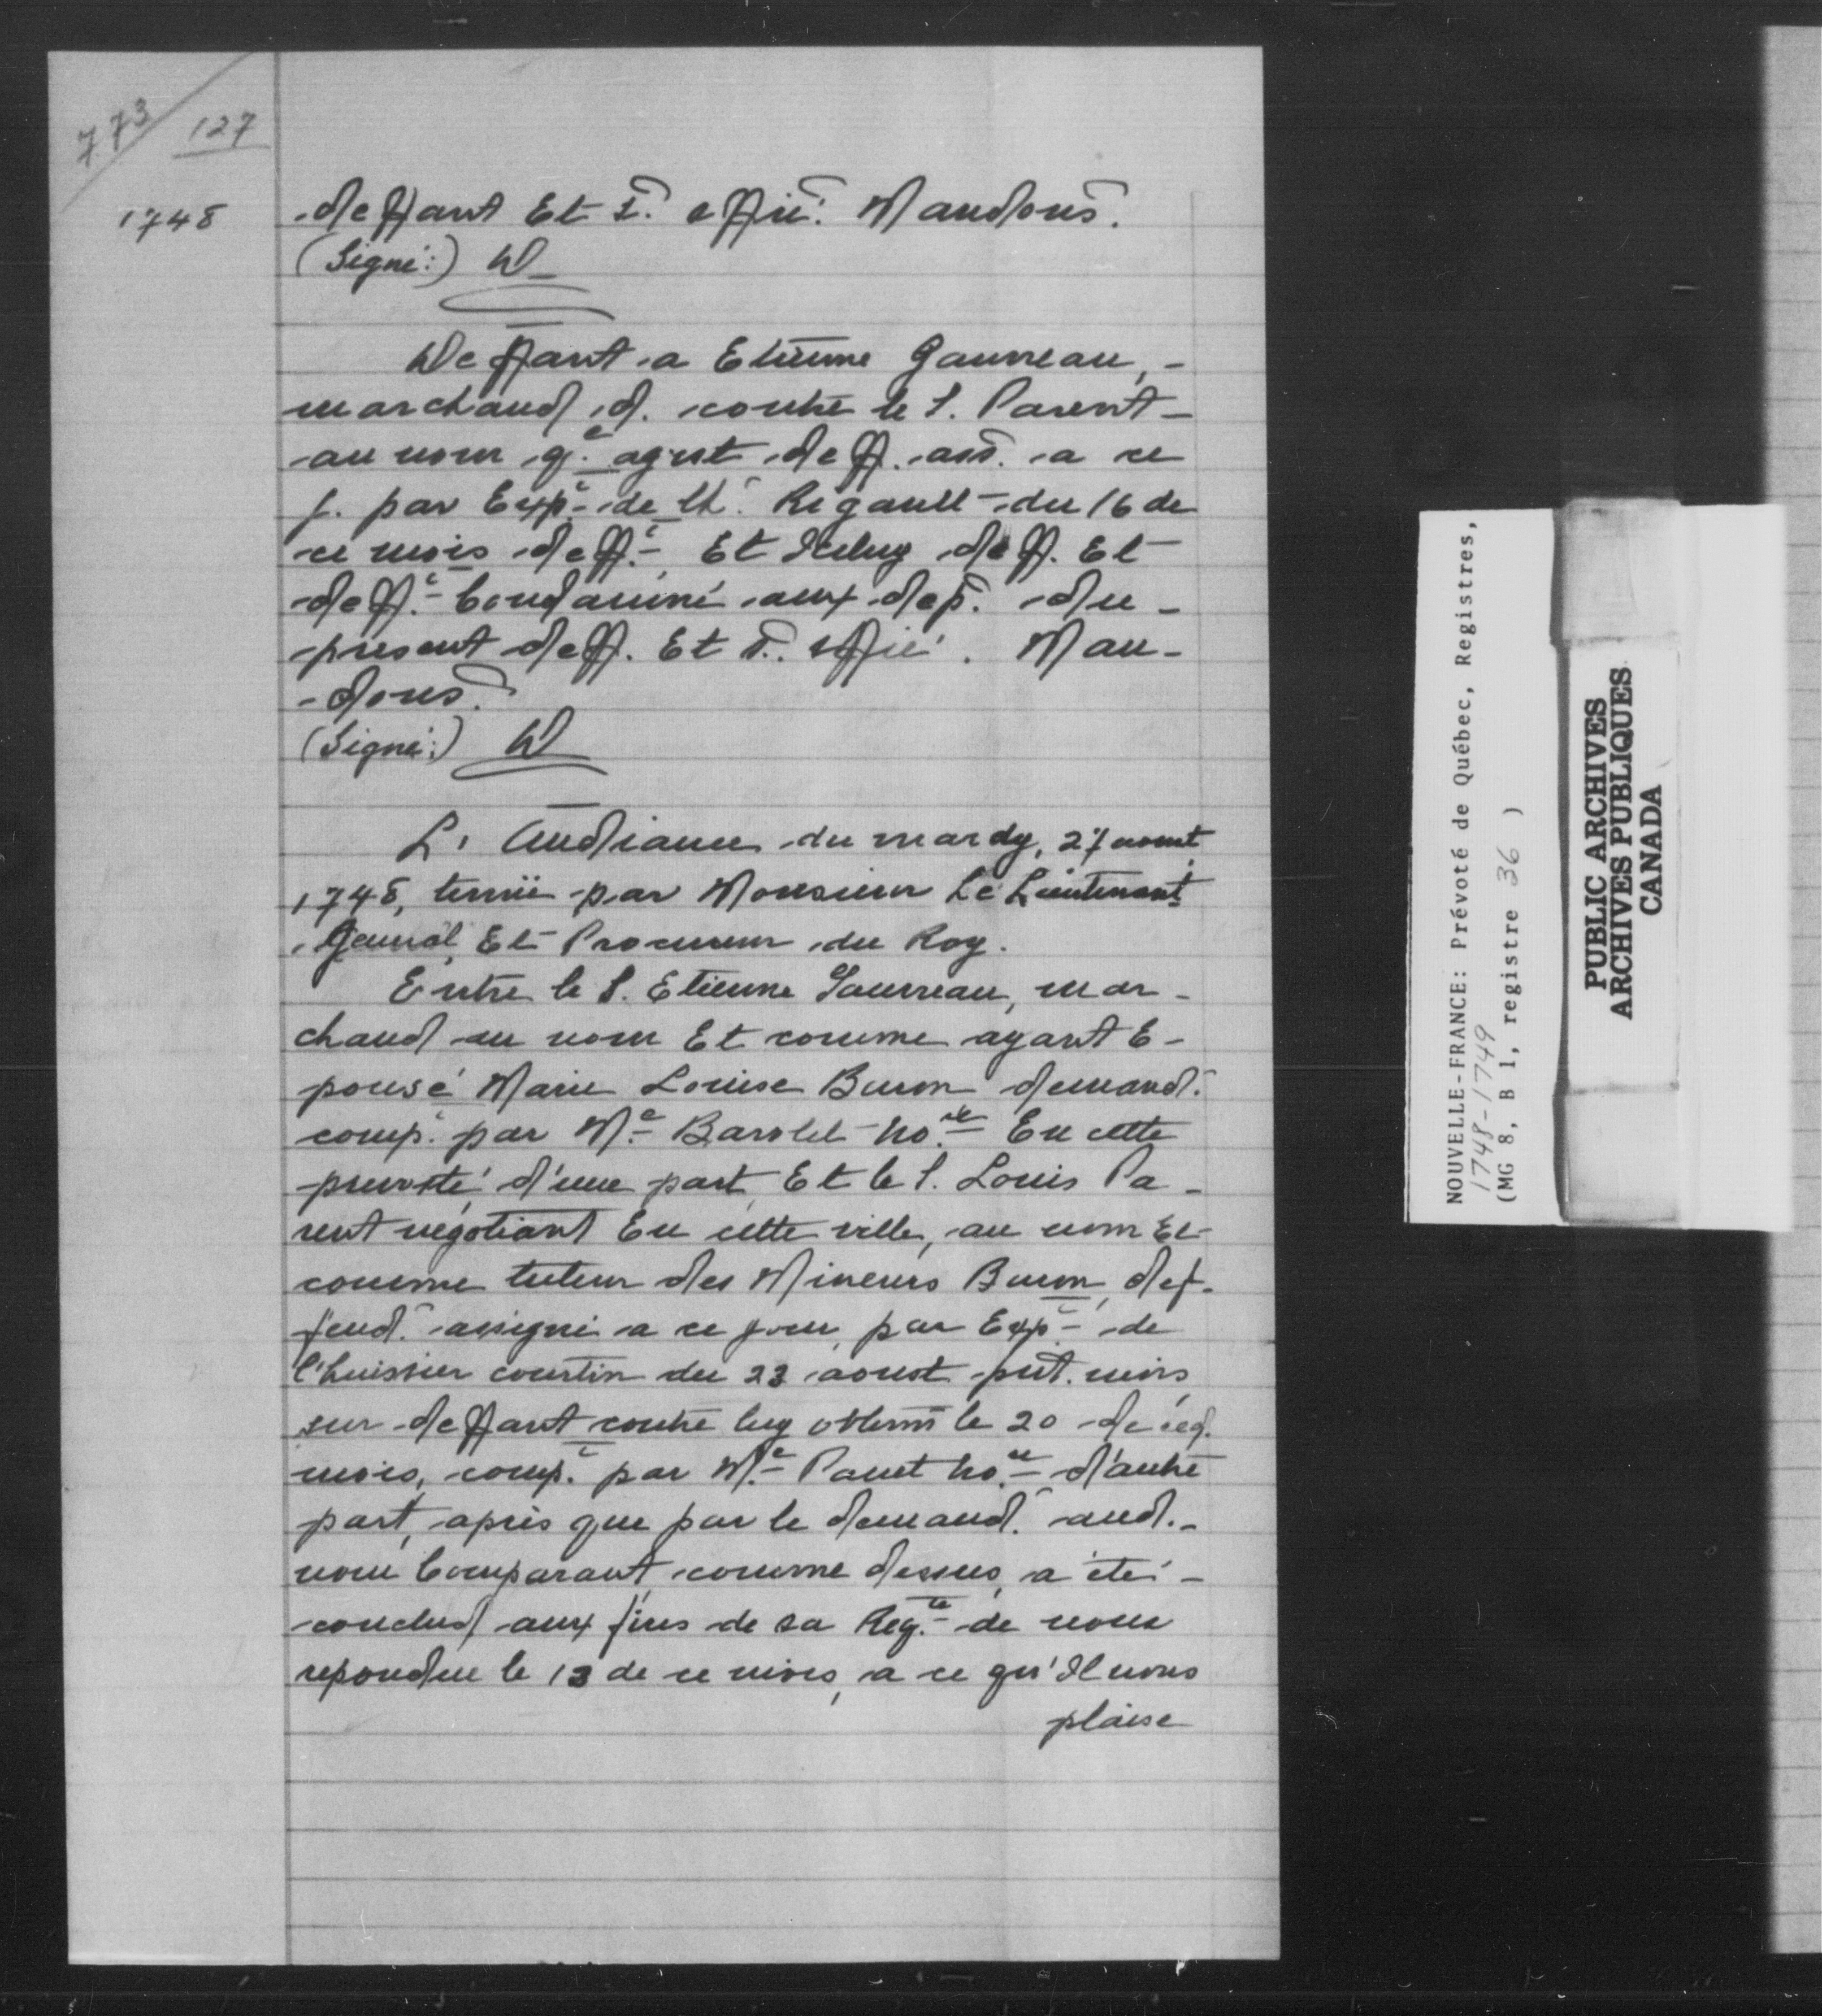 773 127
1748
deffaut Et S. effié. Mandons.
(Signé:) D
Deffaut a Etienne Gauvreau, -
marchand, d. contre le S. Parent -
au nom q.e agist deff. ass. a ce
j. par Exp.t de Rigault du 16 de
ce mois deff.t Et Iceluy deff. Et
deff.t Condamné aux dep. du -
present deff. Et S. effié. Man-
-dons.
(Signé:) D
L'Audiance du mardy, 27 aoust
1748, tenüe par Monsieur Le Lieutenant
General, Et Procureur du Roy.
Entre le S. Etienne Gauvreau, mar-
chand au nom Et comme ayant E-
pousé Marie Louise Buron demand.
comp. par M.e Barolet no.re En cette
prevosté d'une part, Et le S. Louis Pa-
rent negotiant En cette ville, au nom Et
comme tuteur des Mineurs Buron, def-
fend. assigné a ce jour, par Exp.t de
l'huissier courtin du 23 aoust pnt. mois,
sur deffaut contre luy obtenu le 20 de ced.
mois, comp.t par M.e Panet no.re d'autre
part, après que par le demand. aud. -
nom Comparant comme dessus, a été -
conclud aux fins de sa Req.te de nous
repondue le 13 de ce mois, a ce qu'Il nous
plaise
NOUVELLE-FRANCE: Prévoté de Québec, Registres,
1748-1749
(MG 8, B 1, registre 36 )
PUBLIC ARCHIVES
ARCHIVES PUBLIQUES
CANADA